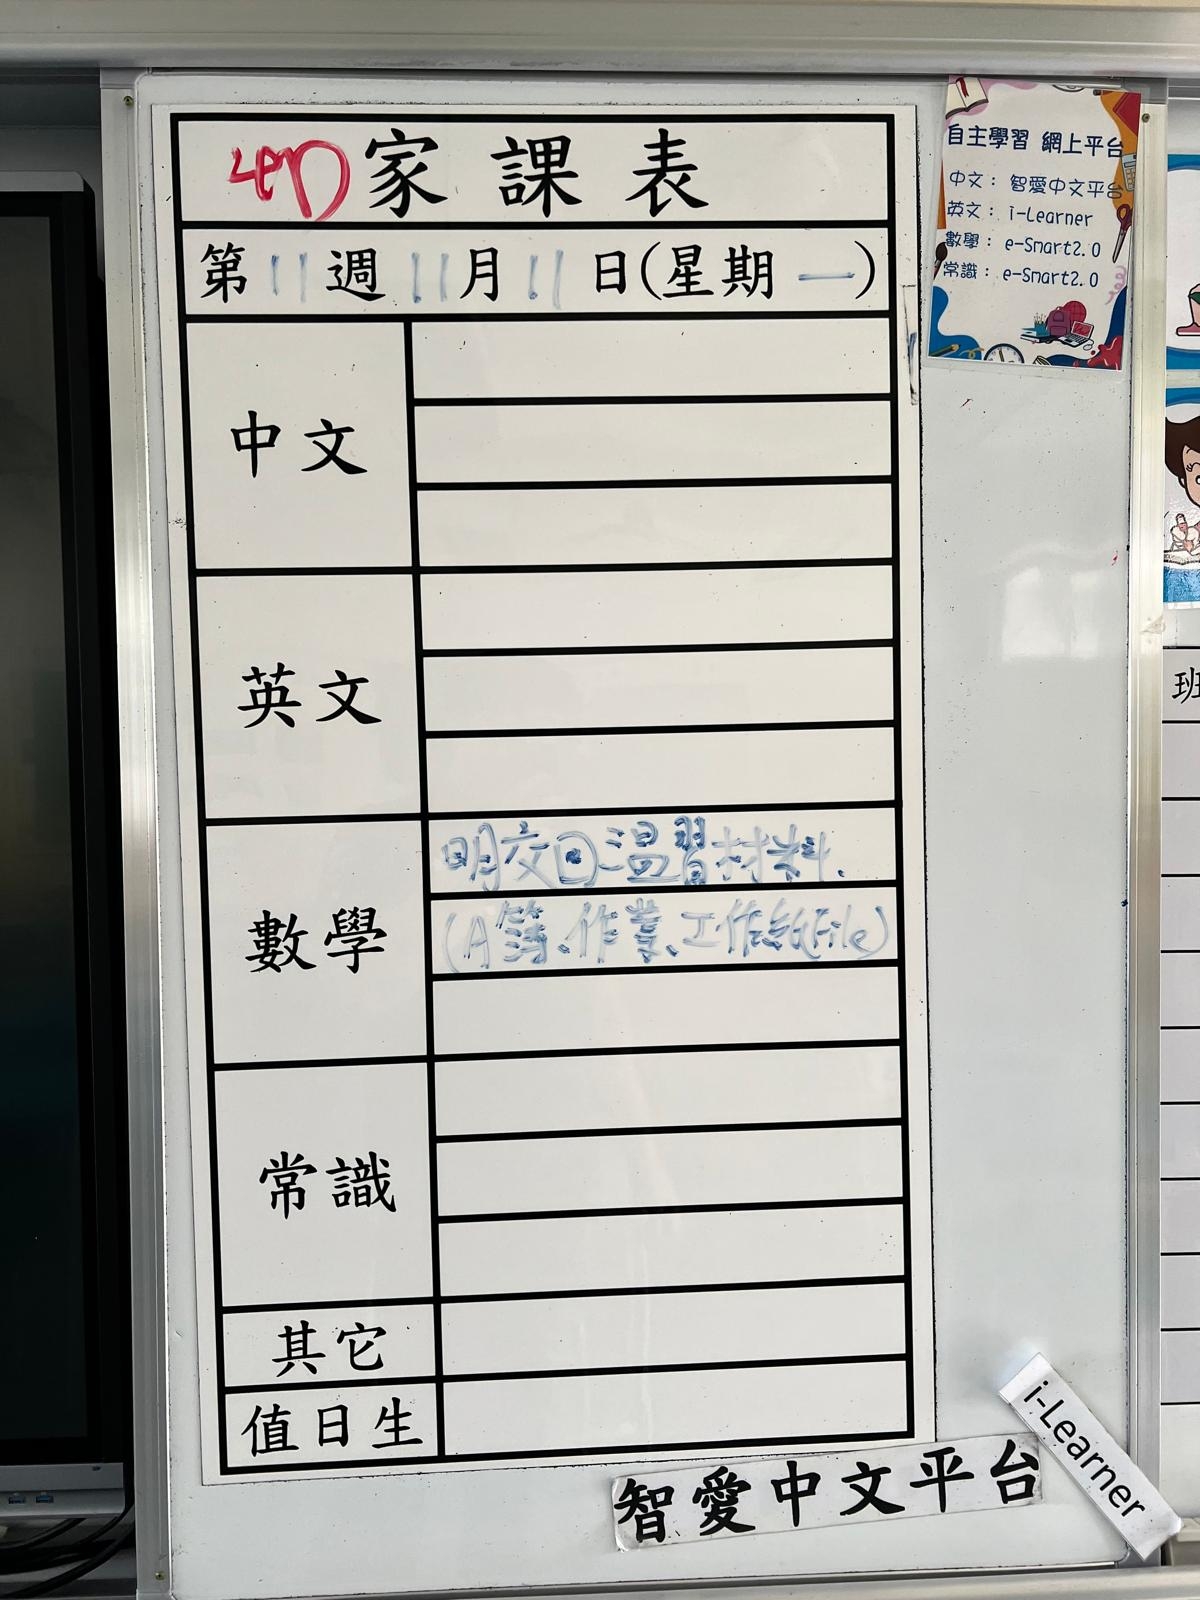 4D家課表
第11週11月11日(星期一)
中文
英文
數學
明交回溫習材料.
(A簿、作業、工作紙File)
常識
其它
值日生
自主學習 網上平台
中文： 智愛中文平台
英文： i-Learner
數學： e-Smart2.0
常識： e-Smart2.0
班
智愛中文平台
i-Learner